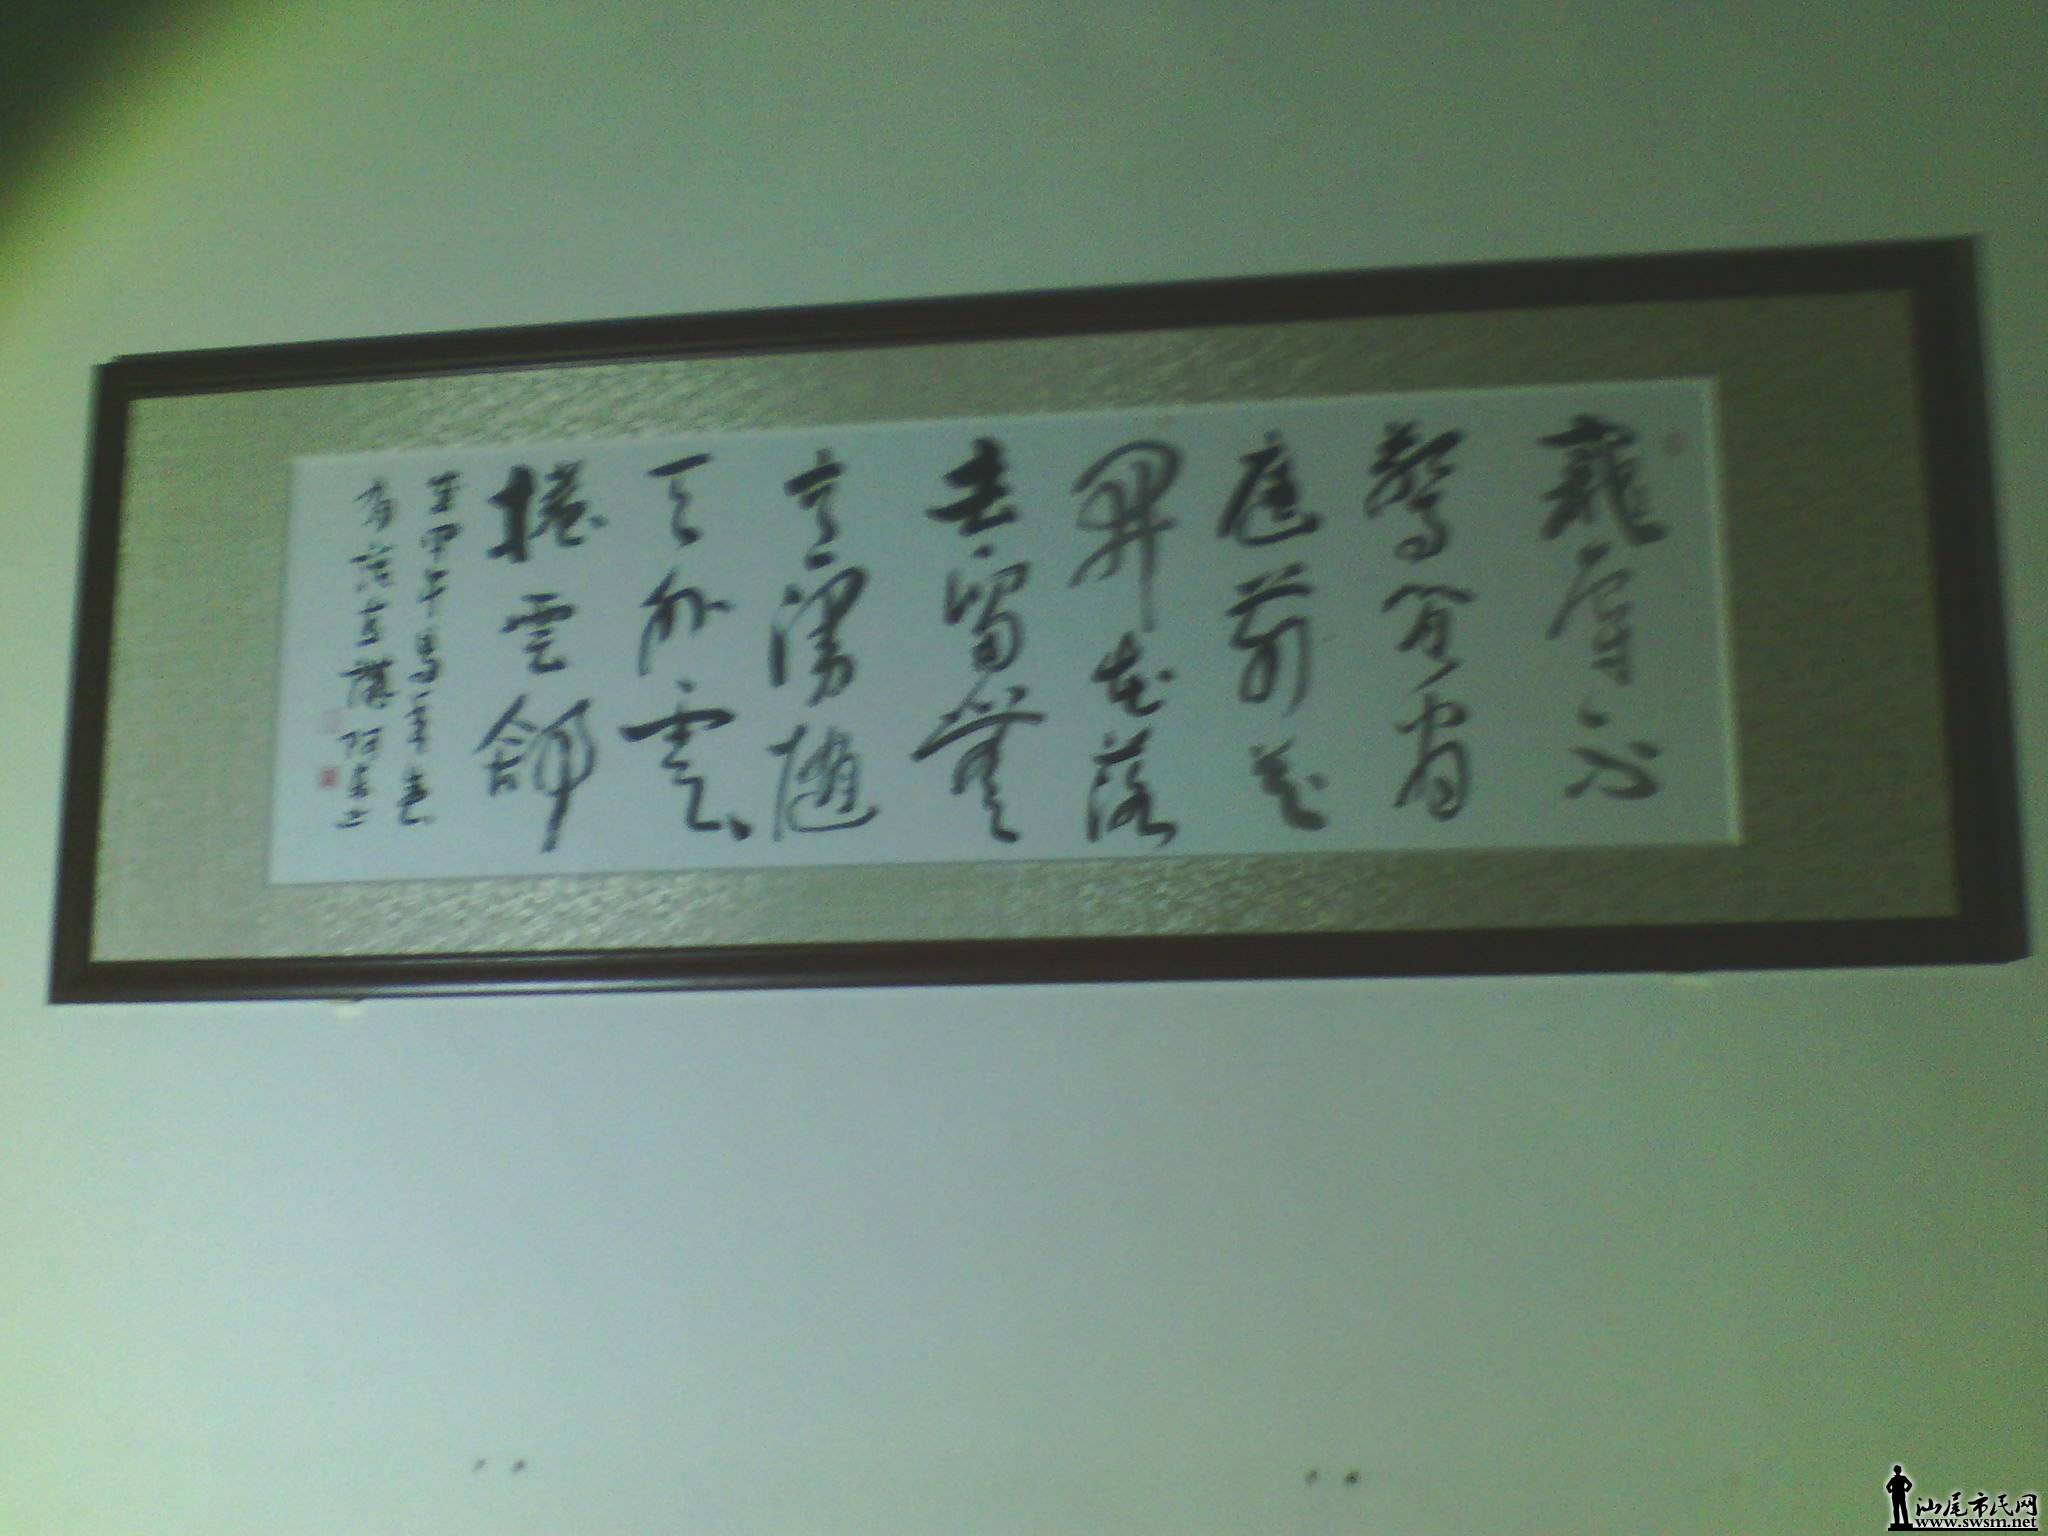 寵辱不
驚閒看
庭前花
開花落
去留無
意漫隨
天外雲
捲雲舒
汕尾市民网
www.swsm.net